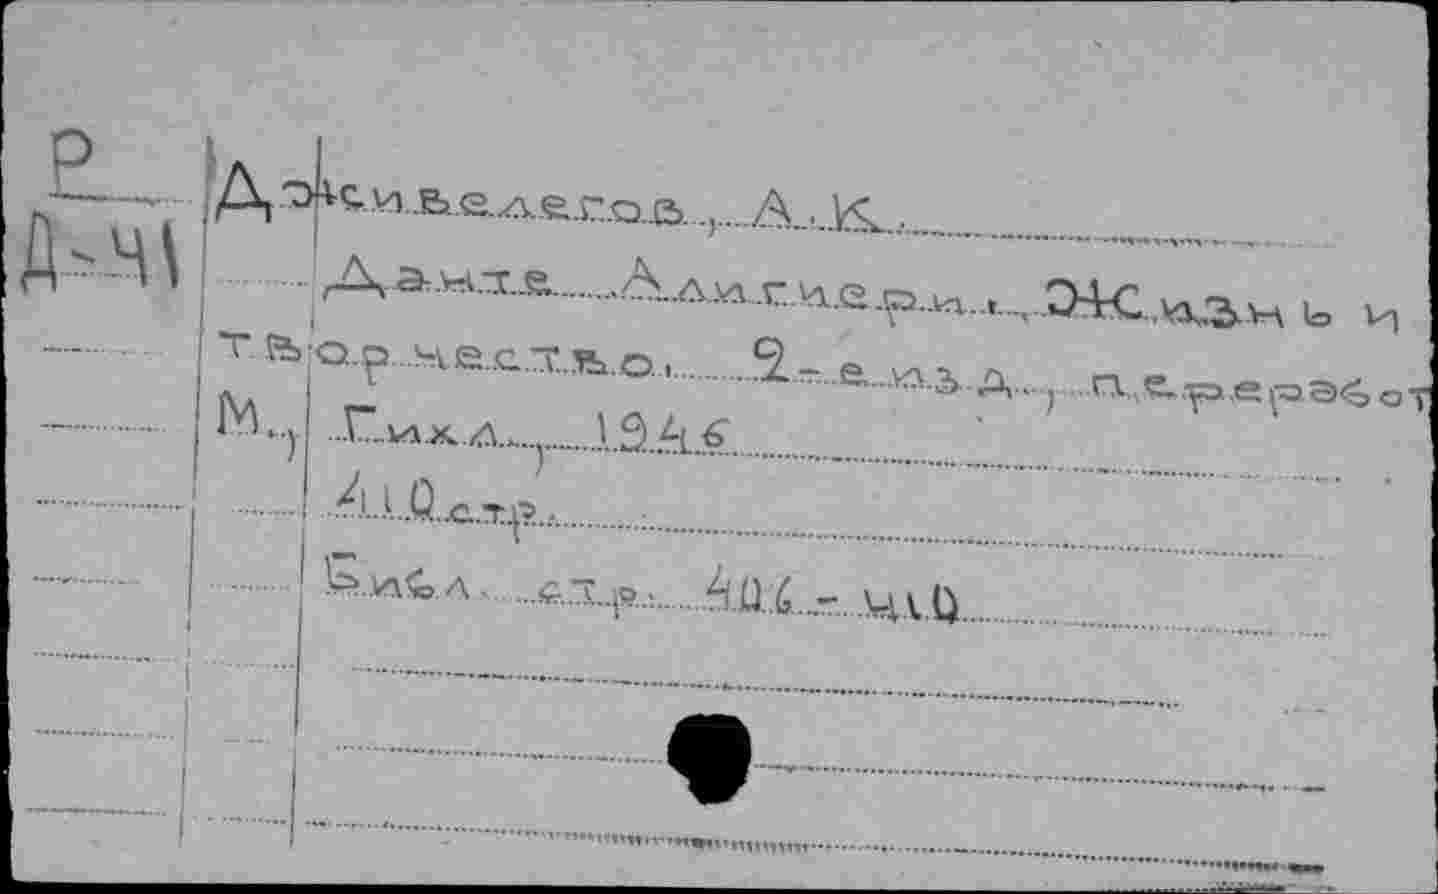 Р
Д-41
Дживелегов, А.К.
Данте Алигиери. Жизнь и
творчество. 2-е изд., переработ
М., Гихл., 1946
410 стр.
Библ. стр. 406-410